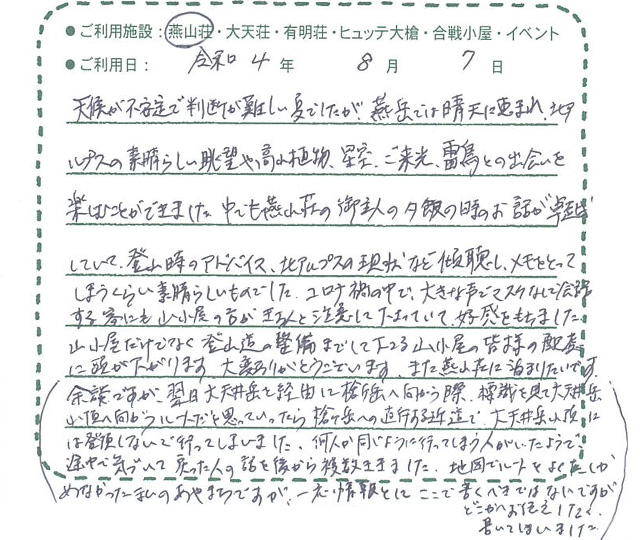 ● ご利用施設：燕山荘・大天荘・有明荘・ヒュッテ大槍・合戦小屋・イベント
● ご利用日：令和4年8月7日
天候が不安定で判断が難しい夏でしたが、燕岳では晴天に恵まれ、北ア
ルプスの素晴らしい眺望や高山植物、星空、ご来光、雷鳥との出会いを
楽しむことができました。中でも燕山荘の御主人の夕飯の時のお話が卓越
していて、登山時のアドバイス、北アルプスの現状など傾聴し、メモをとって
しまうくらい素晴らしいものでした。コロナ禍の中で、大きな声でマスクなしで会話
する客にも山小屋の方がきちんと注意して下さっていて、好感をもちました。
山小屋だけでなく登山道の整備までして下さる山小屋の皆様の献身
に頭が下がります。大変ありがとうございます。また燕山荘に泊まりたいです。
余談ですが、翌日大天井岳を経由に槍ヶ岳へ向かう際、標識を見て大天井岳
山頂へ向かうルートだと思っていったら槍ヶ岳への直行する近道で、大天井岳山頂に
は登頂しないで行ってしまいました。何人か同じように行ってしまう人がいたようで、
途中で気づいて戻った人の話を後から複数ききました。地図でルートをよくたしか
めなかったためのあやまちですが、一応情報として ここで書くべきではないですが
どこかへお伝えしたく
書いてしまいました。